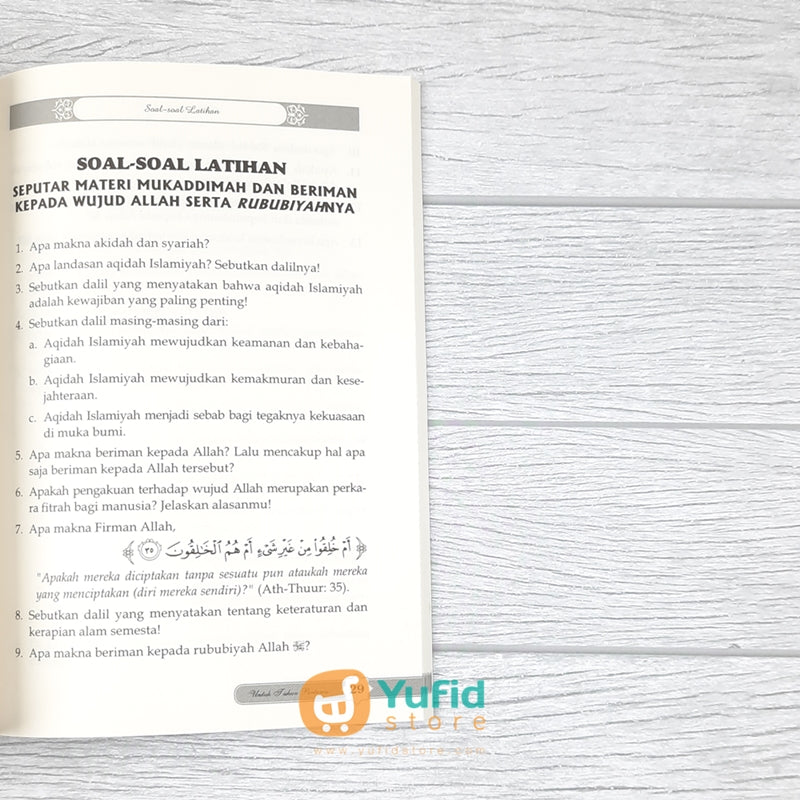 Soal-soal Latihan
SOAL-SOAL LATIHAN
SEPUTAR MATERI MUKADDIMAH DAN BERIMAN
KEPADA WUJUD ALLAH SERTA RUBUBIYAHNYA
1. Apa makna akidah dan syariah?
2. Apa landasan aqidah Islamiyah? Sebutkan dalilnya!
3. Sebutkan dalil yang menyatakan bahwa aqidah Islamiyah
adalah kewajiban yang paling penting!
4. Sebutkan dalil masing-masing dari:
a. Aqidah Islamiyah mewujudkan keamanan dan kebaha-
giaan.
b. Aqidah Islamiyah mewujudkan kemakmuran dan kese-
jahteraan.
c. Aqidah Islamiyah menjadi sebab bagi tegaknya kekuasaan
di muka bumi.
5. Apa makna beriman kepada Allah? Lalu mencakup hal apa
saja beriman kepada Allah tersebut?
6. Apakah pengakuan terhadap wujud Allah merupakan perka-
ra fitrah bagi manusia? Jelaskan alasanmu!
7. Apa makna Firman Allah,
﴿ أَمْ خُلِقُوا۟ مِنْ غَيْرِ شَىْءٍ أَمْ هُمُ ٱلْخَـٰلِقُونَ ٣٥ ﴾
"Apakah mereka diciptakan tanpa sesuatu pun ataukah mereka
yang menciptakan (diri mereka sendiri)?" (Ath-Thuur: 35).
8. Sebutkan dalil yang menyatakan tentang keteraturan dan
kerapian alam semesta!
9. Apa makna beriman kepada rububiyah Allah ﷻ?
Untuk Tahun 29
Yufid
store
www.yufidstore.com